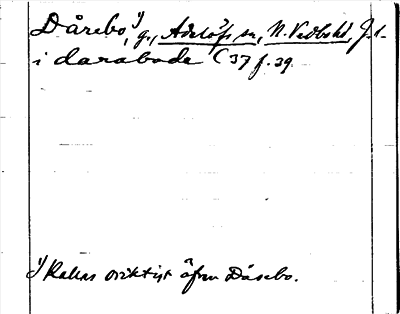 Dårebo,¹⁾ g., Adelöfs sn, N. Vedbohd, J. l.
i darabode (37 f. 39
¹⁾ Kallas oriktigt äfven Dåsebo.